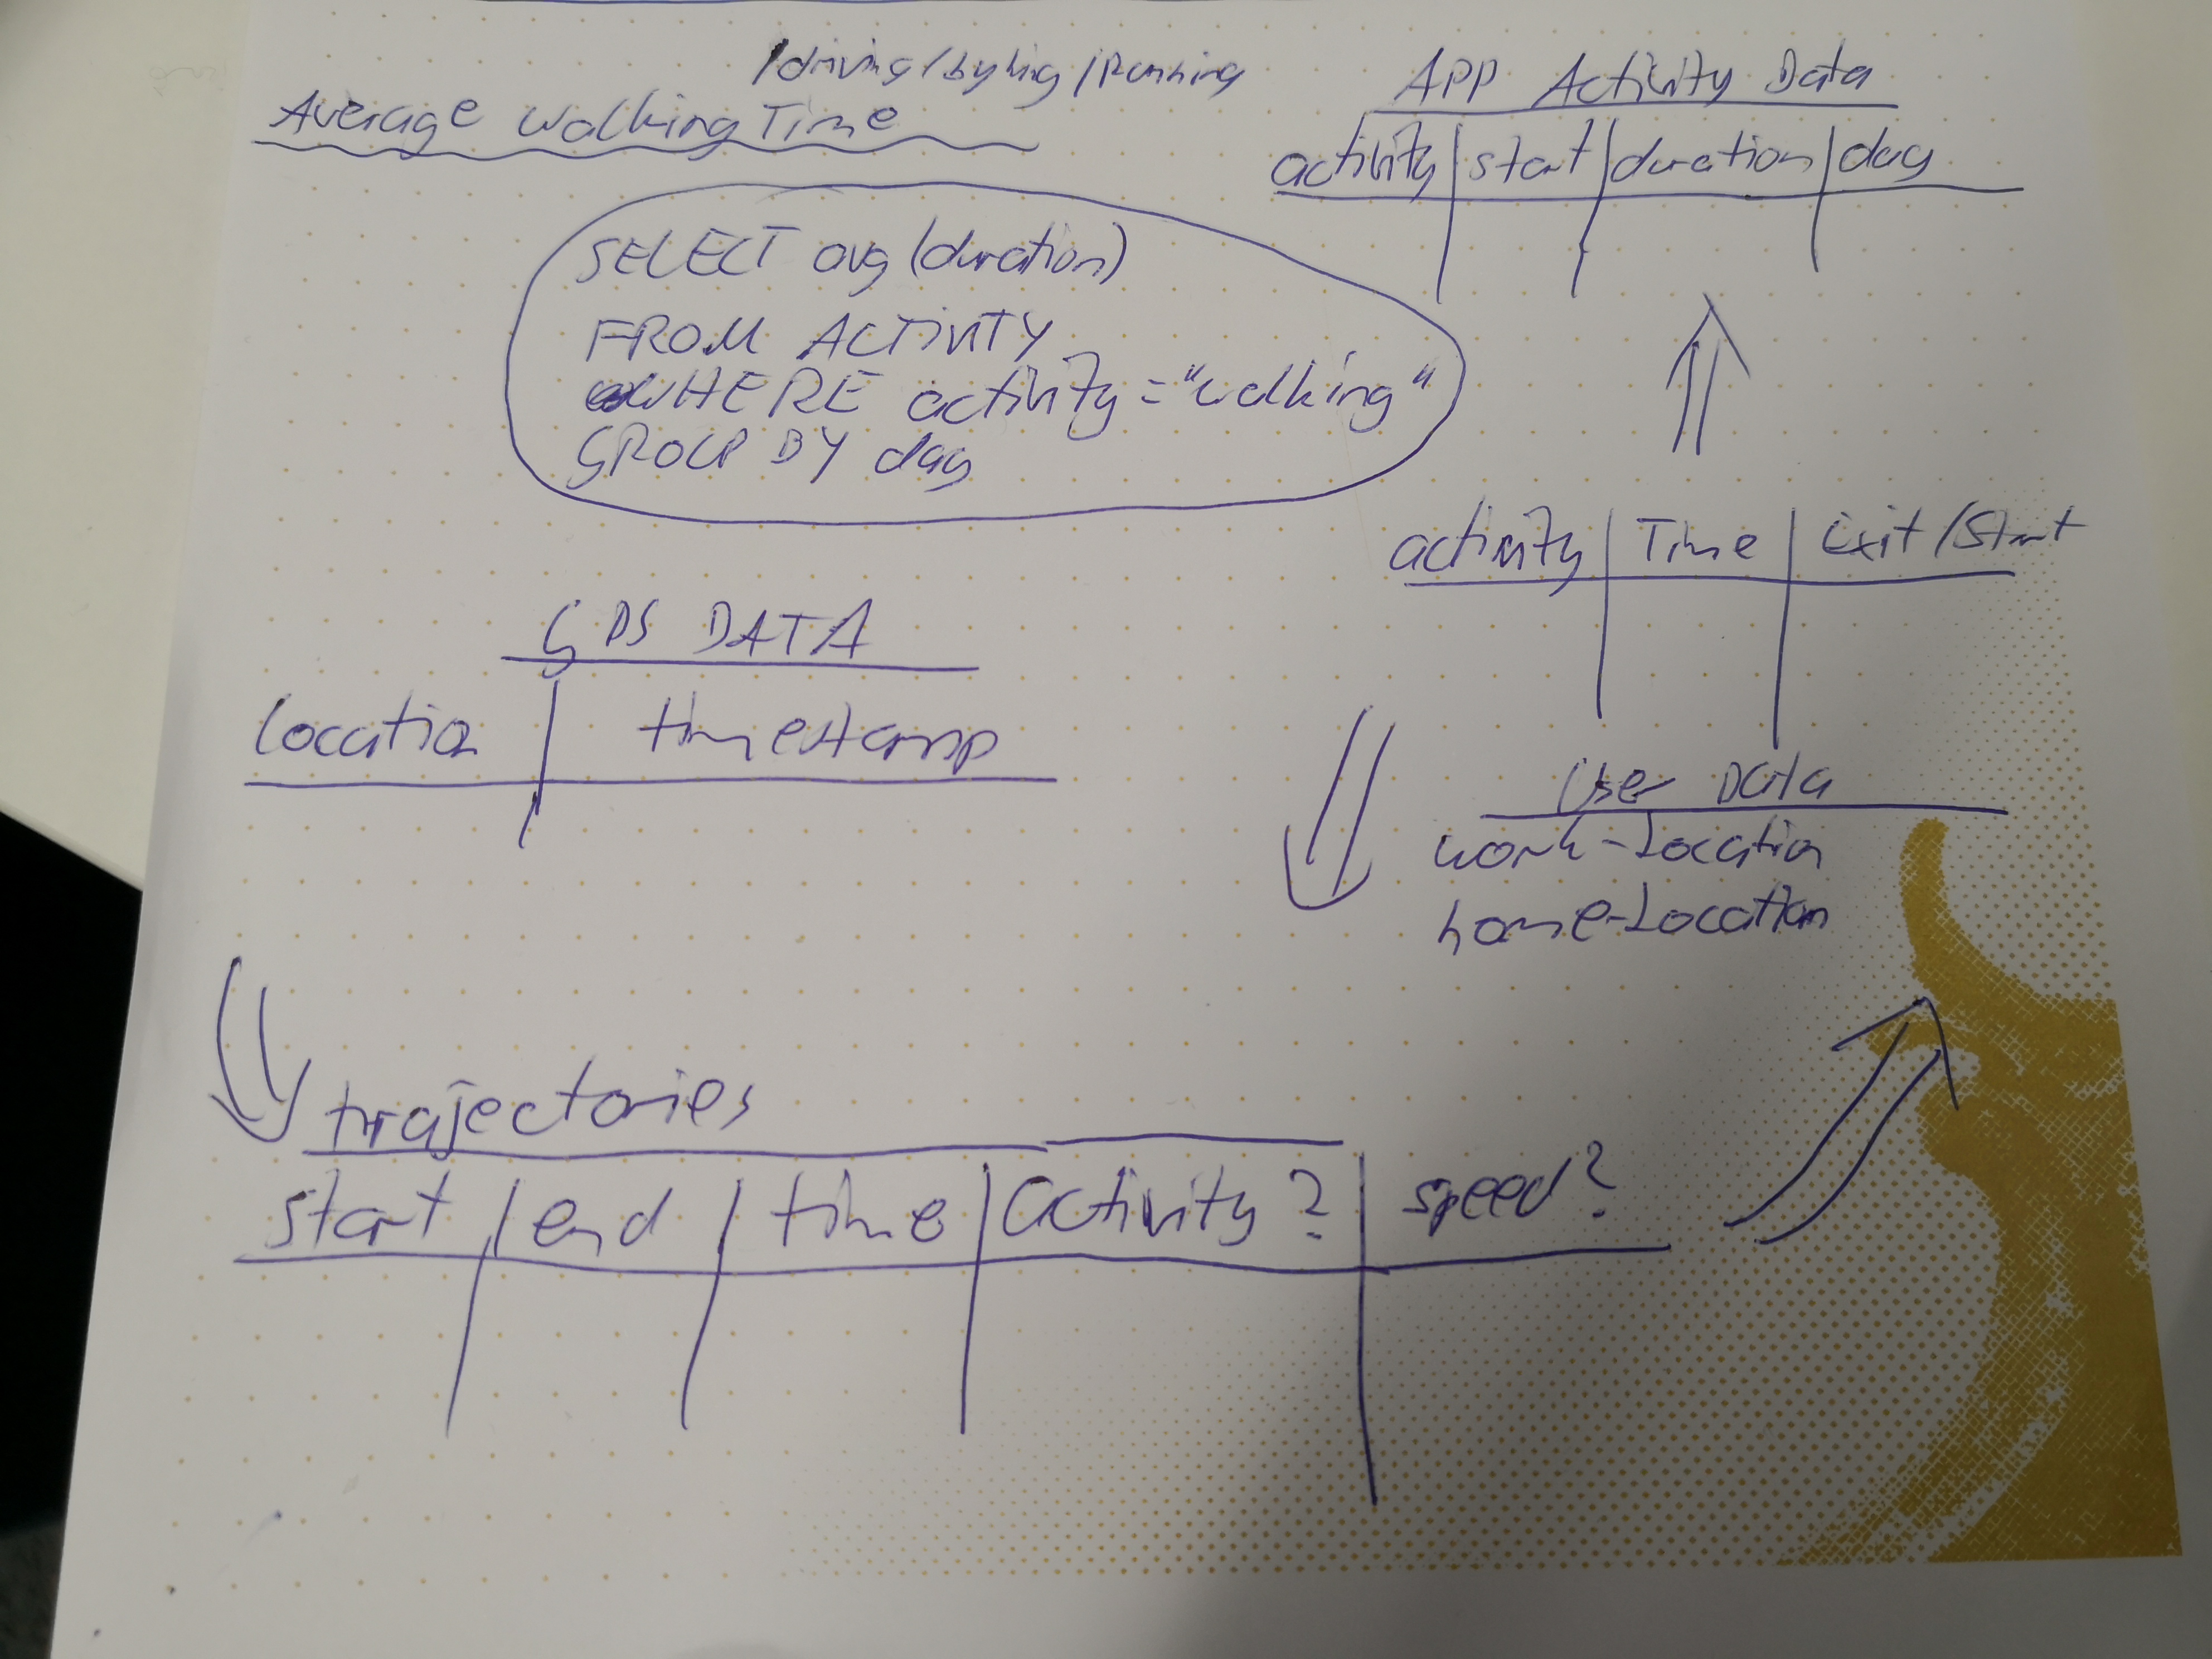 /driving/byking/Running
Average Walking Time
SELECT avg (duration)
FROM ACTIVITY
WHERE activity = "walking"
GROUP BY day
APP Activity Data
activity | start | duration | day
activity | Time | Exit/Start
GPS DATA
location | timestamp
User Data
work-Location
home-Location
trajectories
start | end | time | activity? | speed?